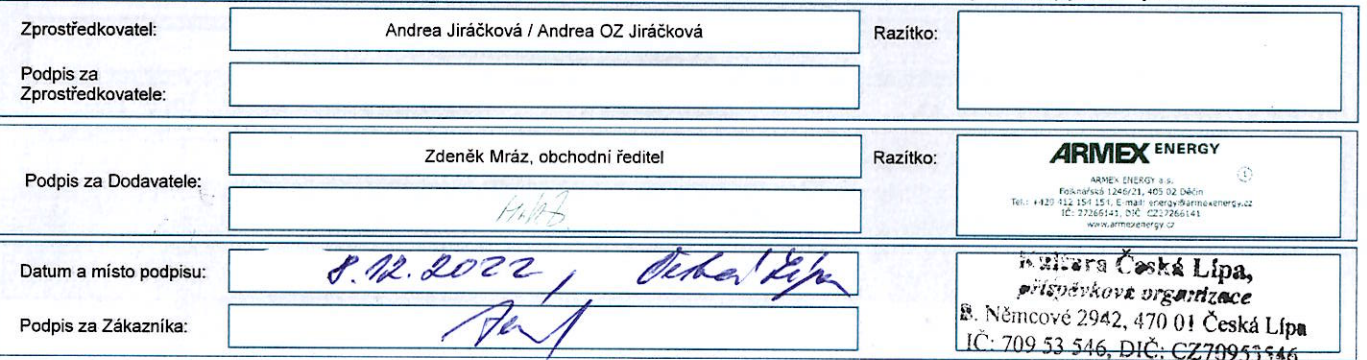 Zprostředkovatel:
Andrea Jiráčková / Andrea OZ Jiráčková
Razítko:
Podpis za
Zprostředkovatele:
Podpis za Dodavatele:
Zdeněk Mráz, obchodní ředitel
Razítko:
ARMEX ENERGY
ARMEX ENERGY a.s.
Folknářská 1246/21, 405 02 Děčín
Tel.: +420 412 154 154, E-mail: energy@armexenergy.cz
IČ: 27266141, DIČ: CZ27266141
www.armexenergy.cz
Datum a místo podpisu:
8.12.2022, Česká Lípa
Podpis za Zákazníka:
Kultura Česká Lípa,
příspěvková organizace
B. Němcové 2942, 470 01 Česká Lípa
IČ: 709 53 546, DIČ: CZ70953546